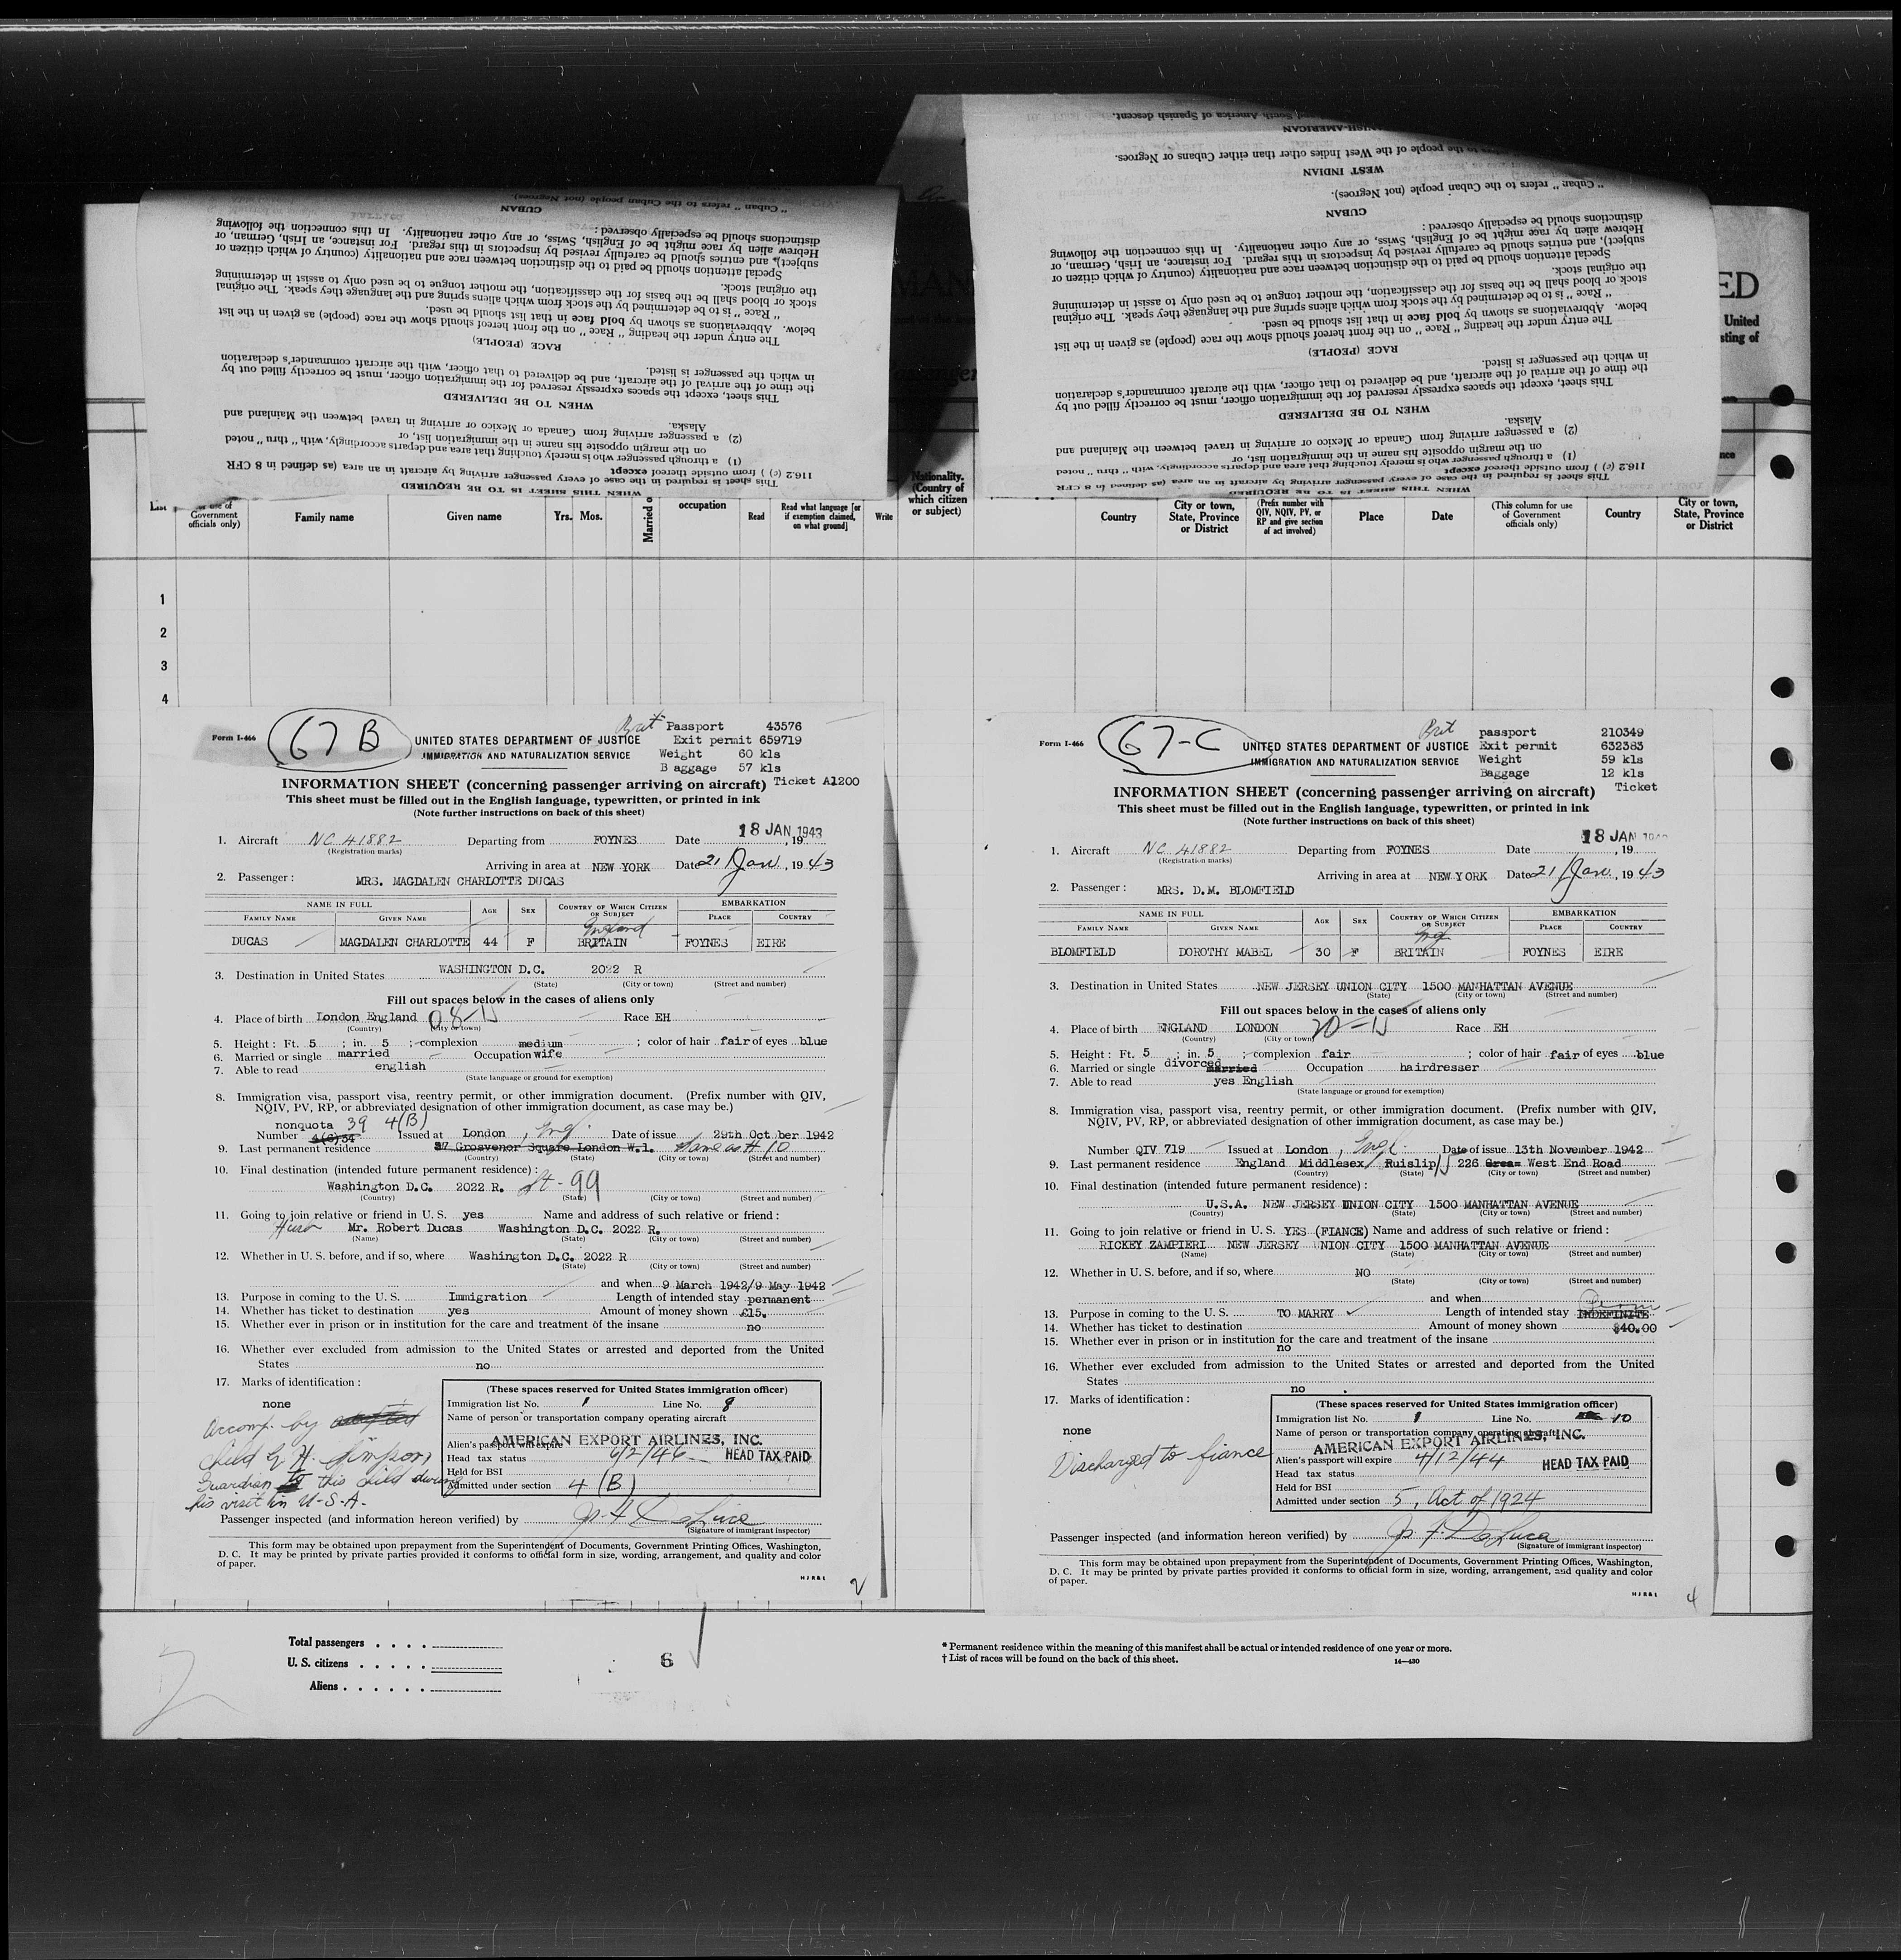 South America of Spanish descent.
SPANISH-AMERICAN
to the people of the West Indies other than either Cubans or Negroes.
WEST INDIAN
" Cuban " refers to the Cuban people (not Negroes).
CUBAN
distinctions should be especially observed :
Hebrew alien by race might be of English, Swiss, or any other nationality. In this connection the following
subject), and entries should be carefully revised by inspectors in this regard. For instance, an Irish, German, or
Special attention should be paid to the distinction between race and nationality (country of which citizen or
the original stock.
stock or blood shall be the basis for the classification, the mother tongue to be used only to assist in determining
" Race " is to be determined by the stock from which aliens spring and the language they speak. The original
below. Abbreviations as shown by bold face in that list should be used.
The entry under the heading " Race " on the front hereof should show the race (people) as given in the list
RACE (PEOPLE)
in which the passenger is listed.
the time of the arrival of the aircraft, and be delivered to that officer, with the aircraft commander's declaration
This sheet, except the spaces expressly reserved for the immigration officer, must be correctly filled out by
WHEN TO BE DELIVERED
Alaska.
(2) a passenger arriving from Canada or Mexico or arriving in travel between the Mainland and
on the margin opposite his name in the immigration list, or
(1) a through passenger who is merely touching that area and departs accordingly, with " thru " noted
116.2 (c) ) from outside thereof except
This sheet is required in the case of every passenger arriving by aircraft in an area (as defined in 8 CFR
WHEN THIS SHEET IS TO BE REQUIRED
" Cuban " refers to the Cuban people (not Negroes).
CUBAN
distinctions should be especially observed :
Hebrew alien by race might be of English, Swiss, or any other nationality. In this connection the following
subject), and entries should be carefully revised by inspectors in this regard. For instance, an Irish, German, or
Special attention should be paid to the distinction between race and nationality (country of which citizen or
the original stock.
stock or blood shall be the basis for the classification, the mother tongue to be used only to assist in determining
" Race " is to be determined by the stock from which aliens spring and the language they speak. The original
below. Abbreviations as shown by bold face in that list should be used.
The entry under the heading " Race " on the front hereof should show the race (people) as given in the list
RACE (PEOPLE)
in which the passenger is listed.
the time of the arrival of the aircraft, and be delivered to that officer, with the aircraft commander's declaration
This sheet, except the spaces expressly reserved for the immigration officer, must be correctly filled out by
WHEN TO BE DELIVERED
Alaska.
(2) a passenger arriving from Canada or Mexico or arriving in travel between the Mainland and
on the margin opposite his name in the immigration list, or
(1) a through passenger who is merely touching that area and departs accordingly, with " thru " noted
116.2 (c) ) from outside thereof except
This sheet is required in the case of every passenger arriving by aircraft in an area (as defined in 8 CFR
WHEN THIS SHEET IS TO BE REQUIRED
ED
United
sting of
use of Government officials only)
Family name
Given name
Yrs. Mos.
Married o
occupation
Read
Read what language [or if exemption claimed, on what ground]
Write
Nationality. (Country of which citizen or subject)
Country
City or town, State, Province or District
(Prefix number with QIV, NQIV, PV, or RP and give section of act involved)
Place
Date
(This column for use of Government officials only)
Country
City or town, State, Province or District
1
2
3
4
Form I-466
67 B
Brit Passport 43576
UNITED STATES DEPARTMENT OF JUSTICE
Exit permit 659719
IMMIGRATION AND NATURALIZATION SERVICE
Weight 60 kls
B aggage 57 kls
INFORMATION SHEET (concerning passenger arriving on aircraft) Ticket A1200
This sheet must be filled out in the English language, typewritten, or printed in ink
(Note further instructions on back of this sheet)
18 JAN 1943
1. Aircraft NC 41882 Departing from FOYNES Date , 19
(Registration marks)
Arriving in area at NEW YORK Date 21 Jan , 19 43
2. Passenger : MRS. MAGDALEN CHARLOTTE DUCAS
NAME IN FULL
EMBARKATION
FAMILY NAME GIVEN NAME AGE SEX COUNTRY OF WHICH CITIZEN OR SUBJECT PLACE COUNTRY
England
DUCAS MAGDALEN CHARLOTTE 44 F BRITAIN FOYNES EIRE
3. Destination in United States WASHINGTON D.C. 2022 R
(State) (City or town) (Street and number)
Fill out spaces below in the cases of aliens only
4. Place of birth London England 08-15 Race EH
(Country) (City or town)
5. Height : Ft. 5 ; in. 5 ; complexion medium ; color of hair fair of eyes blue
6. Married or single married Occupation wife
7. Able to read english
(State language or ground for exemption)
8. Immigration visa, passport visa, reentry permit, or other immigration document. (Prefix number with QIV,
NQIV, PV, RP, or abbreviated designation of other immigration document, as case may be.)
nonquota 39 4(B)
Number 4(C)34 Issued at London , Eng. Date of issue 29th Oct ber 1942
9. Last permanent residence 37 Grosvenor Square London W.1. Same as # 10
(Country) (State) (City or town) (Street and number)
10. Final destination (intended future permanent residence) :
Washington D.C. 2022 R. St-99
(Country) (State) (City or town) (Street and number)
11. Going to join relative or friend in U. S. yes Name and address of such relative or friend :
Husb Mr. Robert Ducas Washington D.C. 2022 R.
(Name) (State) (City or town) (Street and number)
12. Whether in U. S. before, and if so, where Washington D.C. 2022 R
(State) (City or town) (Street and number)
and when 9 March 1942/9 May 1942
13. Purpose in coming to the U. S. Immigration Length of intended stay permanent
14. Whether has ticket to destination yes Amount of money shown £15.
15. Whether ever in prison or in institution for the care and treatment of the insane no
16. Whether ever excluded from admission to the United States or arrested and deported from the United
States no
17. Marks of identification :
none
Accomp. by adopted
child G H Simpson,
Guardian to this child during
his visit in U-S-A.
(These spaces reserved for United States immigration officer)
Immigration list No. 1 Line No. 8
Name of person or transportation company operating aircraft
AMERICAN EXPORT AIRLINES, INC.
Alien's passport will expire 6/2/46
Head tax status HEAD TAX PAID
Held for BSI
Admitted under section 4 (B)
Passenger inspected (and information hereon verified) by Js. F. DeLuca
(Signature of immigrant inspector)
This form may be obtained upon prepayment from the Superintendent of Documents, Government Printing Offices, Washington,
D. C. It may be printed by private parties provided it conforms to official form in size, wording, arrangement, and quality and color
of paper.
H J R & L
2
Form I-466
67-C
Brit passport 210349
UNITED STATES DEPARTMENT OF JUSTICE
Exit permit 632383
IMMIGRATION AND NATURALIZATION SERVICE
Weight 59 kls
Baggage 12 kls
INFORMATION SHEET (concerning passenger arriving on aircraft) Ticket
This sheet must be filled out in the English language, typewritten, or printed in ink
(Note further instructions on back of this sheet)
18 JAN
1. Aircraft NC 41882 Departing from FOYNES Date , 19
(Registration marks)
Arriving in area at NEW YORK Date 21 Jan , 19 43
2. Passenger : MRS. D.M. BLOMFIELD
NAME IN FULL
EMBARKATION
FAMILY NAME GIVEN NAME AGE SEX COUNTRY OF WHICH CITIZEN OR SUBJECT PLACE COUNTRY
Eng
BLOMFIELD DOROTHY MABEL 30 F BRITAIN FOYNES EIRE
3. Destination in United States NEW JERSEY UNION CITY 1500 MANHATTAN AVENUE
(State) (City or town) (Street and number)
Fill out spaces below in the cases of aliens only
4. Place of birth ENGLAND LONDON 20-15 Race EH
(Country) (City or town)
5. Height : Ft. 5 ; in. 5 ; complexion fair ; color of hair fair of eyes blue
6. Married or single divorced married Occupation hairdresser
7. Able to read yes English
(State language or ground for exemption)
8. Immigration visa, passport visa, reentry permit, or other immigration document. (Prefix number with QIV,
NQIV, PV, RP, or abbreviated designation of other immigration document, as case may be.)
Number QIV 719 Issued at London , Engl. Date of issue 13th November 1942
9. Last permanent residence England Middlesex Ruislip 226 West End Road
(Country) (State) (City or town) (Street and number)
10. Final destination (intended future permanent residence) :
U.S.A. NEW JERSEY UNION CITY 1500 MANHATTAN AVENUE
(Country) (State) (City or town) (Street and number)
11. Going to join relative or friend in U. S. YES (FIANCE) Name and address of such relative or friend :
RICKEY ZAMPIERI NEW JERSEY UNION CITY 1500 MANHATTAN AVENUE
(Name) (State) (City or town) (Street and number)
12. Whether in U. S. before, and if so, where NO
(State) (City or town) (Street and number)
and when
Perm
13. Purpose in coming to the U. S. TO MARRY Length of intended stay INDEFINITE
14. Whether has ticket to destination Amount of money shown $40.00
15. Whether ever in prison or in institution for the care and treatment of the insane
no
16. Whether ever excluded from admission to the United States or arrested and deported from the United
States
no
17. Marks of identification :
none
Discharged to fiance
(These spaces reserved for United States immigration officer)
Immigration list No. 1 Line No. 10
Name of person or transportation company operating aircraft
AMERICAN EXPORT AIRLINES, INC.
Alien's passport will expire 4/12/44
Head tax status HEAD TAX PAID
Held for BSI
Admitted under section 5, Act of 1924
Passenger inspected (and information hereon verified) by Js. F. DeLuca
(Signature of immigrant inspector)
This form may be obtained upon prepayment from the Superintendent of Documents, Government Printing Offices, Washington,
D. C. It may be printed by private parties provided it conforms to official form in size, wording, arrangement, and quality and color
of paper.
H J R & L
4
Total passengers
U. S. citizens
Aliens
6
* Permanent residence within the meaning of this manifest shall be actual or intended residence of one year or more.
† List of races will be found on the back of this sheet.
14—430